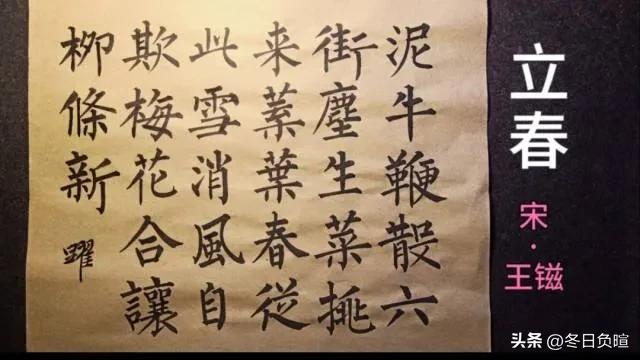 立春
宋·王镃
泥牛鞭散六
街塵生菜挑
来葉葉春從
此雪消風自
欺梅花合讓
柳條新
躍
头条 @冬日负暄